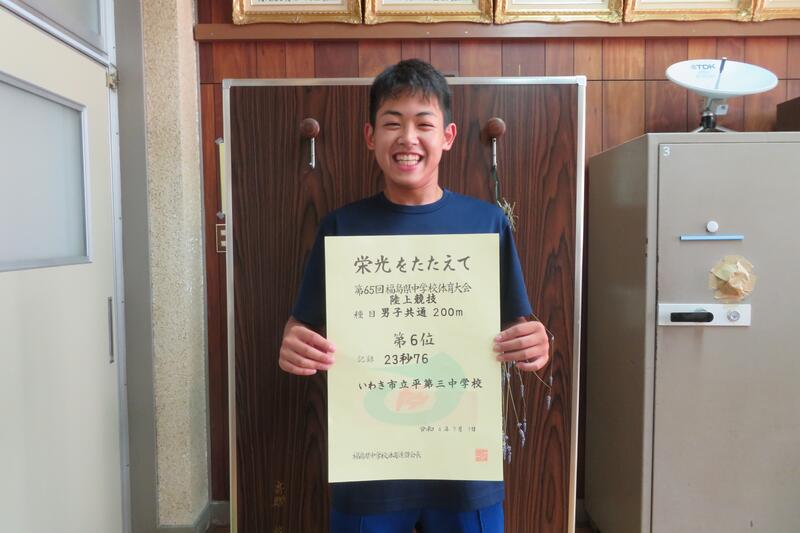 TDK
3
栄光をたたえて
第65回福島県中学校体育大会
陸上競技
種目 男子共通 200m
第6位
記録 23秒76
いわき市立平第三中学校
福島県中学校体育連盟会長